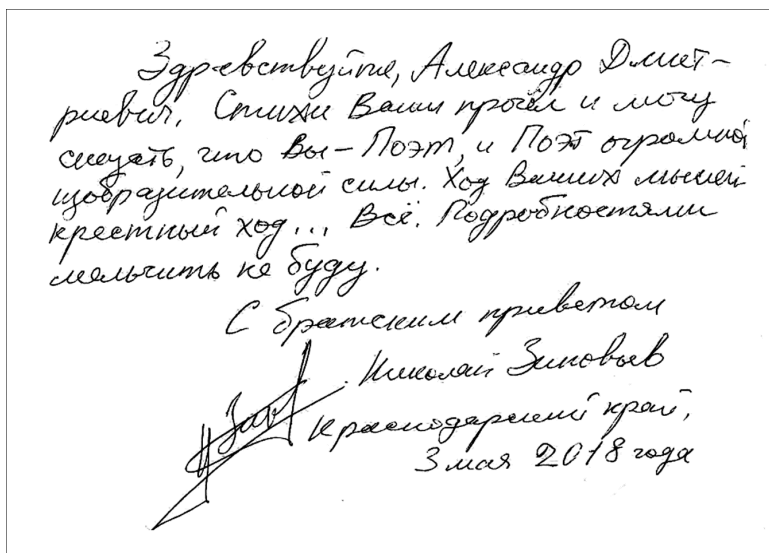 Здравствуйте, Александр Дмит-
риевич. Стихи Ваши прочёл и могу
сказать, что Вы – Поэт, и Поэт огромной
изобразительной силы. Ход Ваших мыслей
крестный ход... Всё. Подробностями
мельчить не буду.
С братским приветом
Николай Зиновьев
Краснодарский край,
3 мая 2018 года